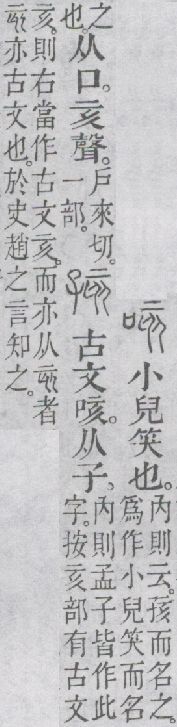 咳 小兒笑也。
內則云。孩而名之。
爲作小兒笑而名
之
也。
从口。亥聲。
戶來切。
一部。
古文咳。从子。
內則孟子皆作此
字。按亥部有古文
亥。則右當作古文亥。而亦从亥者
亥亦古文也。於史趙之言知之。